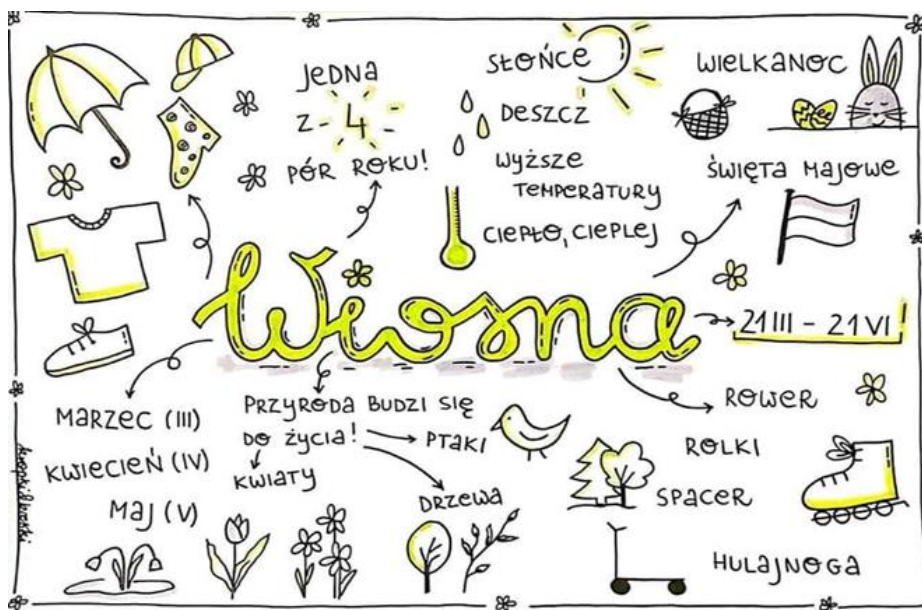 JEDNA
Z 4
PÓR ROKU!
SŁOŃCE
DESZCZ
WYŻSZE
TEMPERATURY
CIEPŁO, CIEPLEJ
WIELKANOC
ŚWIĘTA MAJOWE
Wiosna
21 III - 21 VI
MARZEC (III)
KWIECIEŃ (IV)
MAJ (V)
PRZYRODA BUDZI SIĘ
DO ŻYCIA!
PTAKI
KWIATY
DRZEWA
ROWER
ROLKI
SPACER
HULAJNOGA
kropki&kreski